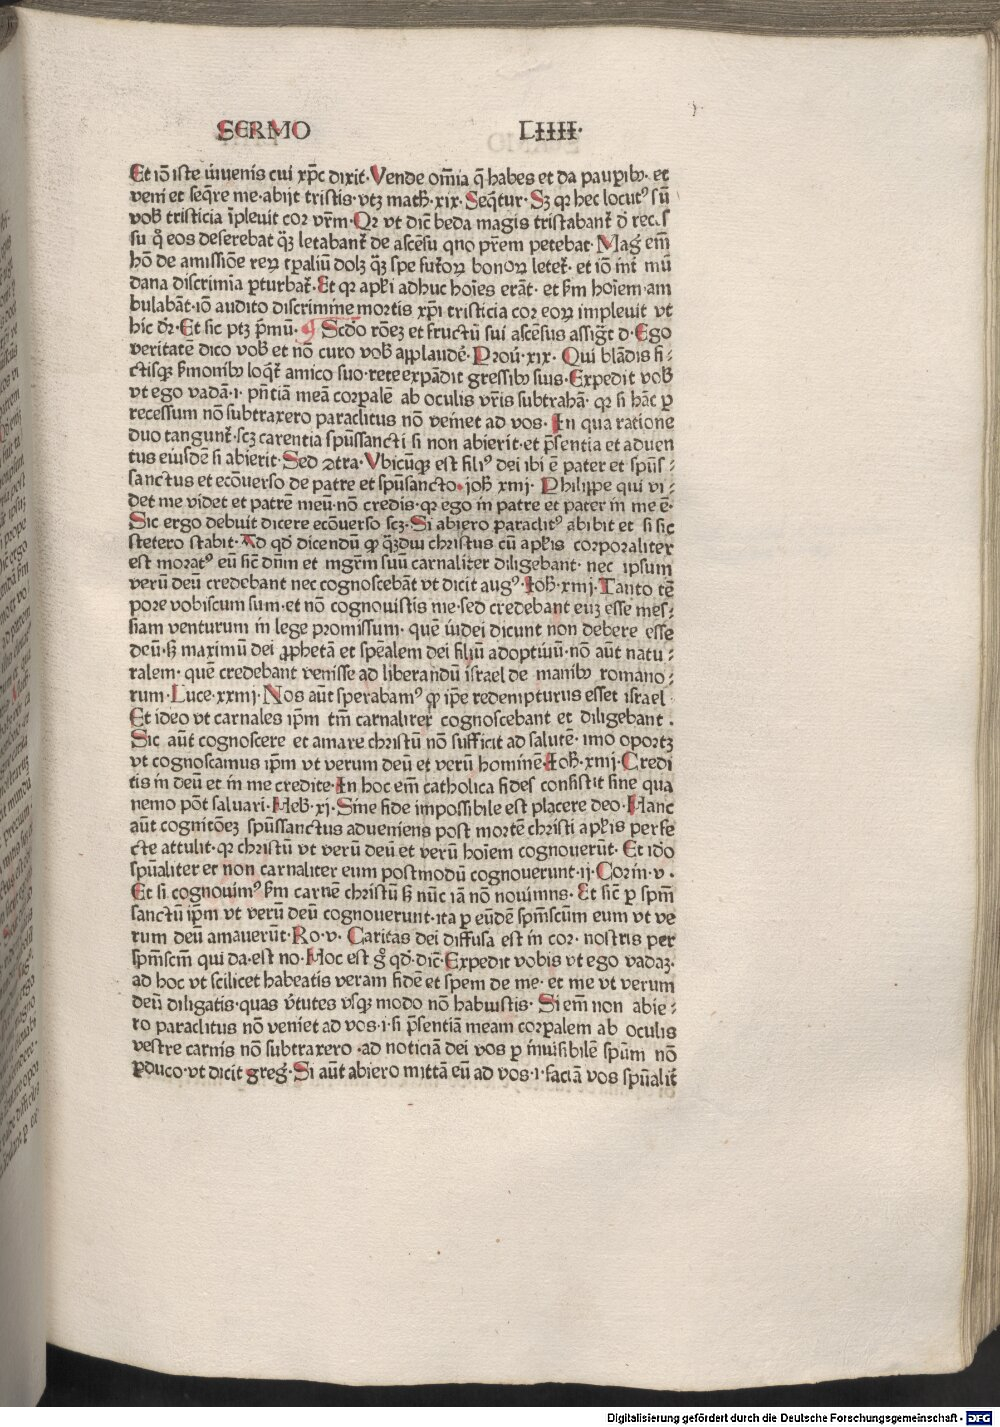 SERMO LIIII·
Et iō iste iuuenis cui xp̄c dixit· Vende om̄ia q̄ habes et da paup̲ib9· et
veni et seq̄re me· abijt tristis· vtꝫ math̄· xix· Seq̄tur· Sꝫ qꝛ hec locut9 sū
vob̄ tristicia īpleuit cor vr̄m· Qꝛ vt dic̄ beda magis tristabant̄ ð
su q̊ eos deserebat q̈ꝫ letabant̄ de ascēsu qno pr̄em petebat· Maḡ em̄
hō de amissiōe reꝝ tp̲aliū dolꝫ q̈ꝫ spe fut̄oꝝ bonoꝝ letet̄· et iō int̄ mū
dana discrimīa p̲turbat̄· Et qꝛ apl̄i adhuc hoīes erāt· et fm hoīem am
bulabāt· iō audito discrimine mortis xp̄i tristicia cor eoꝝ impleuit vt
hic dꝛ̄· Et sic ptꝫ p̄mū· ¶ Scd̄o rōeꝫ et fructū sui ascēsus assiḡt d· Ego
veritatē dico vob̄ et nō curo vob̄ applaudē· Prou̇· xix· Qui blādis fi-
ctisqꝫ f̄monib9 loq̄t̄ amico suo· rete expādit gressib9 suis· Expedit vob̄
vt ego vadā· i· pn̄tiā meā corp̲alē ab oculis vr̄is subtrahā· qꝛ si hāc p̲
recessum nō subtraxero paraclitus nō veniet ad vos· In qua ratione
duo tangunt̄· scꝫ carentia spūssancti si non abierit· et p̄sentia et aduen
tus eiusdē si abierit· Sed ↄtra· Vbicūqꝫ est fili9 dei ibi ē pater et spūs-
sanctus et ecōuerso de patre et spūsancto· ioh̄ xiiij· Philippe qui vi-
det me videt et patrē meū· nō credis· qꝛ ego in patre et pater in me ē·
Sic ergo debuit dicere ecōuerso scꝫ· Si abiero paraclit9 abibit et si sic
stetero stabit· Ad qd̄ dicendū ꝙ q̈ꝫdiu christus cū apl̄is corporaliter
est morat9 eū sic̄ dn̄m et mgr̄m suū carnaliter diligebant· nec ipsum
verū deū credebant nec cognoscebāt vt dicit aug9· Ioh̄· xiiij· Tanto tē
pore vobiscum sum· et nō cognouistis me· sed credebant euꝫ esse mes-
siam venturum in lege promissum· quē iudei dicunt non debere esse
deū· sꝫ maximū dei ꝓphetā et spēalem dei filiū adoptiuū· nō aūt natu-
ralem· quē credebant venisse ad liberandū israel de manib9 romano-
rum· Luce· xxiiij· Nos aūt sperabam9 ꝙ ip̄e redempturus esset israel
Et ideo vt carnales ip̄m tm̄ carnaliter cognoscebant et diligebant·
Sic aūt cognoscere et amare christū nō sufficit ad salutē· imo oportꝫ
vt cognoscamus ip̄m vt verum deū et verū hominē· Ioh̄· xiiij· Credi
tis in deū et in me credite· In hoc em̄ catholica fides consistit sine qua
nemo pōt saluari· Heb̄· xj· Sine fide impossibile est placere deo· Hanc
aūt cognitōeꝫ spūssanctus adueniens post mortē christi apl̄is perfe
cte attulit· qꝛ christū vt verū deū et verū hoīem cognouerūt· Et id̄o
spūaliter et non carnaliter eum postmodū cognouerunt· ij· Corin· v·
Et si cognouim9 fm carnē christū sꝫ nūc iā nō nouimus· Et sic̄ p̲ spm̄
sanctū ip̄m vt verū deū cognouerunt· ita p̲ eūdē spm̄scūm eum vt ve
rum deū amauerūt· Ro· v· Caritas dei diffusa est in cor· nostris per
spm̄scm̄ qui da· est no· Hoc est g̊ qd̄ dic̄· Expedit vobis vt ego vadaꝫ·
ad hoc vt scilicet habeatis veram fidē et spem de me· et me vt verum
deū diligatis· quas v̄tutes vsqꝫ modo nō habuistis· Si em̄ non abie-
ro paraclitus nō veniet ad vos· i· si p̄sentiā meam corp̲alem ab oculis
vestre carnis nō subtraxero· ad noticiā dei vos p̲ inuisibilē spūm nō
p̲duco· vt dicit greḡ· Si aūt abiero mittā eū ad vos· i· faciā vos spūalit̄
Digitalisierung gefördert durch die Deutsche Forschungsgemeinschaft - DFG